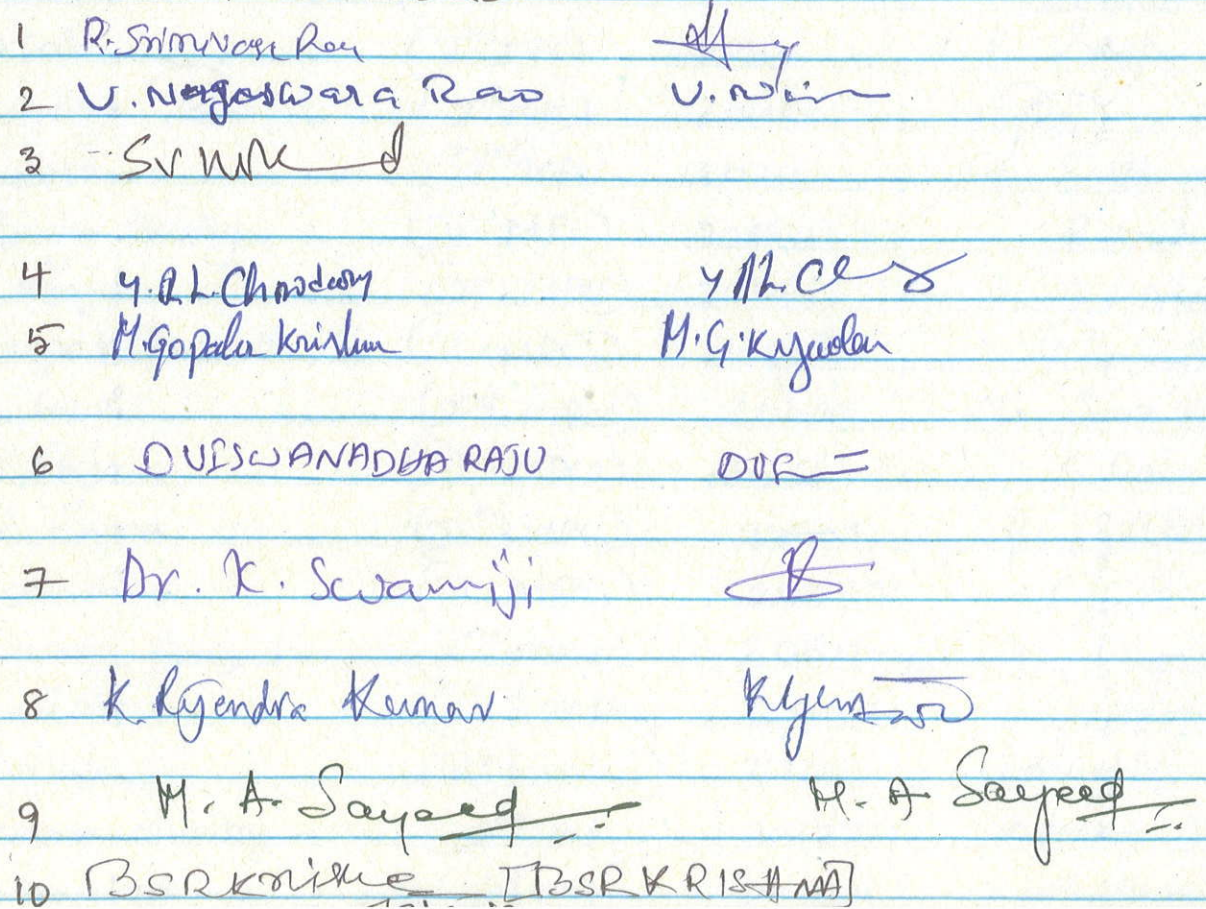 1 R. Srinivasa Rao
2 V. Nageswara Rao V.
3
4 Y.R.L. Chowdary Y R L
5 M. Gopala Krishna M.G.K
6 D VISWANADHA RAJU DVR
7 Dr. K. Swamiji
8 K. Rajendra Kumar
9 M. A. Sayeed M. A Sayeed
10 BSRKrishna [BSRKRISHNA]